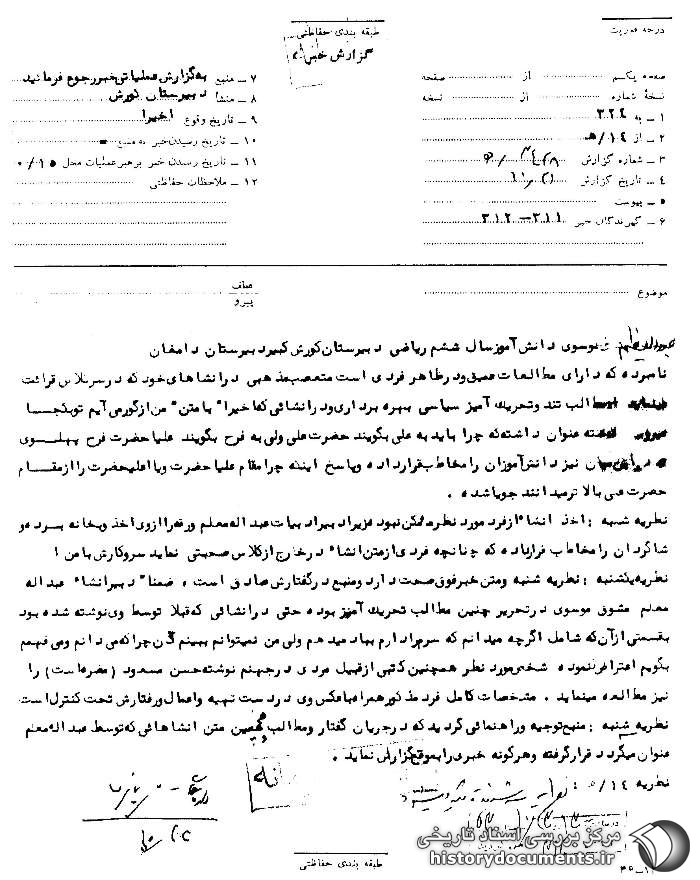 درجه فوریت
طبقه بندی حفاظتی
گزارش خبر
صفحه یکم از صفحه
نسخه شماره از نسخه
۱ – به ۳۲۴
۲ – از ۱۴/ه
۳ – شماره گزارش
۴ – تاریخ گزارش
۵ – پیوست
۶ – گیرندگان خبر ۳۱۱–۳۱۲
۷ – منبع به گزارش عملیاتی خبر رجوع فرمائید
۸ – منشأ دبیرستان کورش
۹ – تاریخ وقوع اخیرا
۱۰ – تاریخ رسیدن خبر به منبع
۱۱ – تاریخ رسیدن خبر برهبر عملیات محل ۱۵/۰
۱۲ – ملاحظات حفاظتی
موضوع
عطف
پیرو
موسوی دانش آموز سال ششم ریاضی دبیرستان کورش کبیر دبیرستان دامغان
نامبرده که دارای مطالعات عمیق و در ظاهر فردی است متعصب مذهبی در انشاهای خود که در سر کلاس قرائت
مطالب تند و تحریک آمیز سیاسی بهره برداری و در انشائی که اخیرا" با متن" من از گور می آیم تو بکجا
عنوان داشته که چرا باید به علی بگویند حضرت علی ولی به فرح بگویند علیا حضرت فرح پهلوی
نیز دانش آموزان را مخاطب قرار داده و پاسخ اینکه چرا مقام علیا حضرت و یا اعلیحضرت را از مقام
حضرت علی بالاتر میدانند جویا شده .
نظریه شنبه : اخذ انشاء از فرد مورد نظر ممکن نبود زیرا دبیر ادبیات عبداله معلم ورقه را از وی اخذ و بخانه برده و
شاگردان را مخاطب قرار داده که چنانچه فردی از متن انشاء در خارج از کلاس صحبتی نماید سروکارش با من
نظریه یکشنبه : نظریه شنبه و متن خبر فوق صحت دارد و منبع در گفتارش صادق است ، ضمنا" دبیر انشاء عبداله
معلم مشوق موسوی در تحریر چنین مطالب تحریک آمیز بوده حتی در انشائی که قبلا توسط وی نوشته شده بود
بقسمتی از آن که شامل اگرچه میدانم که سرم را دارم بباد میدهم ولی من نمیتوانم ببینم چرا که می دانم و می فهمم
بگویم اعتراف نموده شخص مورد نظر همچنین کتبی از قبیل مردی در جهنم نوشته حسن مسعود (مضره است) را
نیز مطالعه مینماید . مشخصات کامل فرد مذکور همراه با عکس وی در دست تهیه و اعمال و رفتارش تحت کنترل است
نظریه شنبه : منبع توجیه و راهنمائی گردید که در جریان گفتار و مطالب همچنین متن انشاهائی که توسط عبداله معلم
عنوان میگردد قرار گرفته و هرگونه خبری را بموقع گزارش نماید .
نظریه ۱۴/ه :
طبقه بندی حفاظتی
مرکز بررسی اسناد تاریخی
historydocuments.ir